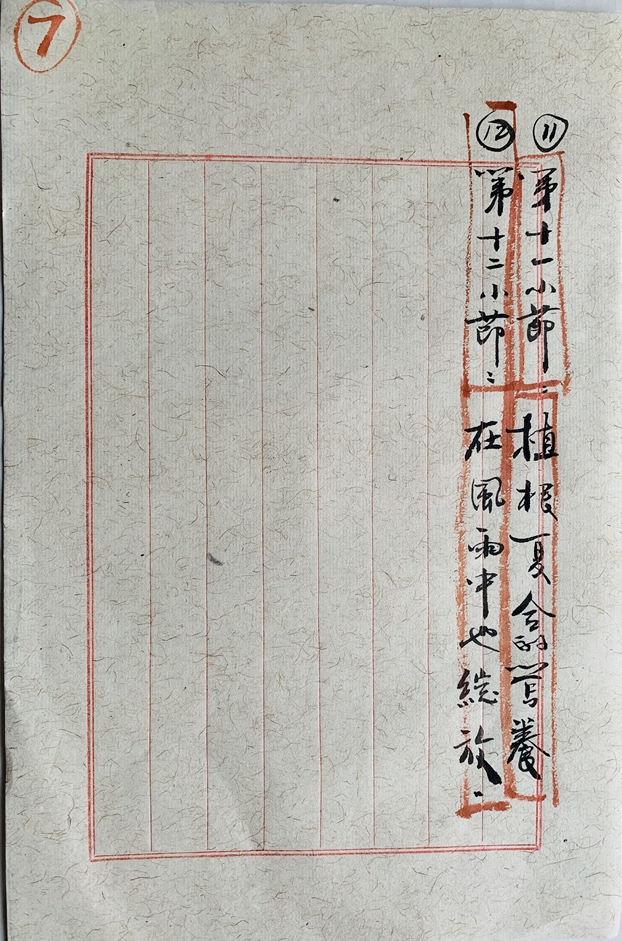 7
⑪ 第十一小節：植根复合的营養
⑫ 第十二小節：在風雨中也綻放。